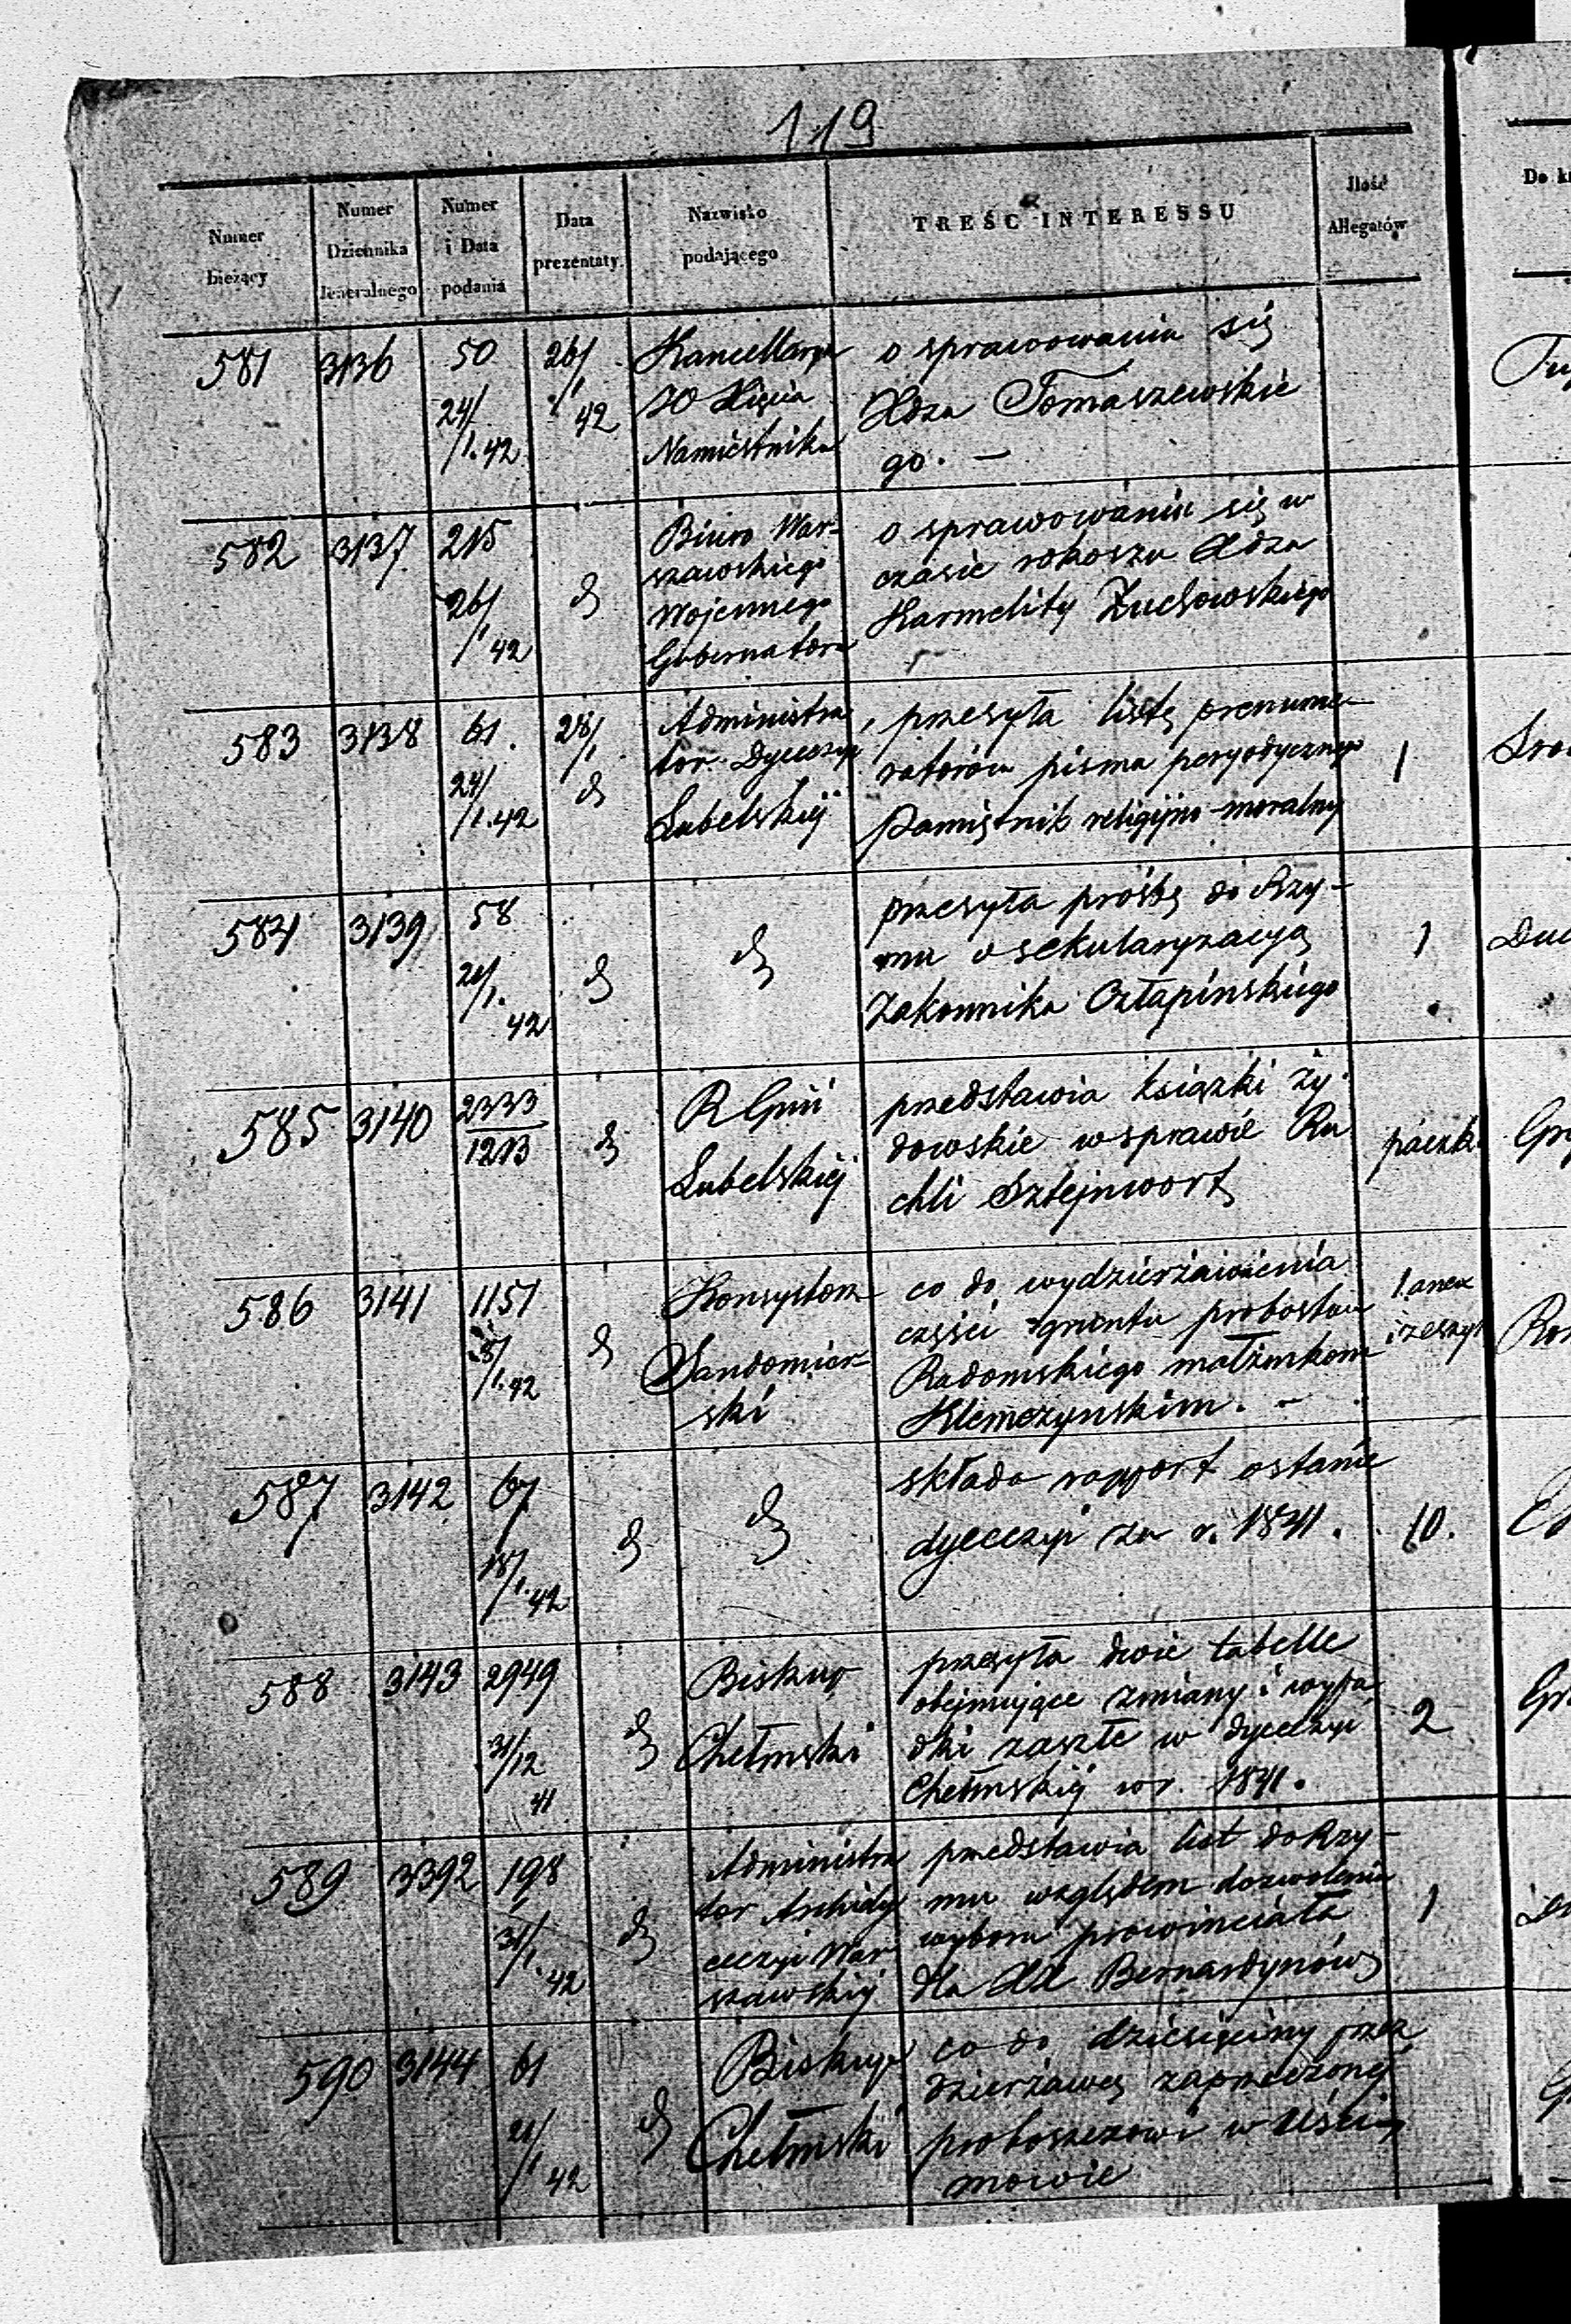 119
Numer bieżący
Numer Dziennika Jeneralnego
Numer i Data podania
Data prezentaty
Nazwisko podającego
TREŚĆ INTERESSU
Ilość Allegatów
Do k
581 3136 50 24/1.42 26/1 42
Kancellarya
JO Xięcia
Namiestnika
o sprawowaniu się
Xdza Tomaszewskie
go. —
582 3137 215 26/1 42 d
Biuro War-
szawskiego
Wojennego
Gubernatora
o sprawowaniu się w
czasie rokoszu Xdza
Karmelity Żuchowskiego
583 3138 61. 24/1.42 28/1 d
Administra
tor Dyecezyi
Lubelskiéj
przesyła listę prenume-
ratorów pisma peryodycznego
Pamiętnik religijno-moralny
1
584 3139 58 21/1. 42 d
d
przesyła prośbę do Rzy-
mu o sekularyzacyą
Zakonnika Człapińskiego
1
585 3140 2333/1213 d
R Gnii
Lubelskiéj
przedstawia książki ży-
dowskie w sprawie Ru
chli Sztejnwort
paczka
586 3141 1151 8/1.42 d
Konsystorz
Sandomier-
ski
co do wydzierżawienia
części gruntu probostwa
Radomskiego małżonkom
Klemczynskim. —
1. anex
i zeszyt
587 3142 67 18/1.42 d
d
składa rapport o stanie
dyecezyi za r. 1841.
10.
588 3143 2949 31/12 41 d
Biskup
Chełmski
przesyła dwie tabelle
obejmujące zmiany i wypa
dki zaszłe w dyecezyi
Chełmskiéj w r. 1841.
2
589 3392 198 31/1. 42 d
Administra
tor Archidy
ecezyi War
szawskiéj
przedstawia list do Rzy-
mu względem dozwolenia
wyboru prowincjała
dla XX Bernardynów
1
590 3144 61 21/1 42 d
Biskup
Chełmski
co do dziesięciny przez
dzierżawcę zaprzeczonéj
proboszczowi w Uści-
mowie